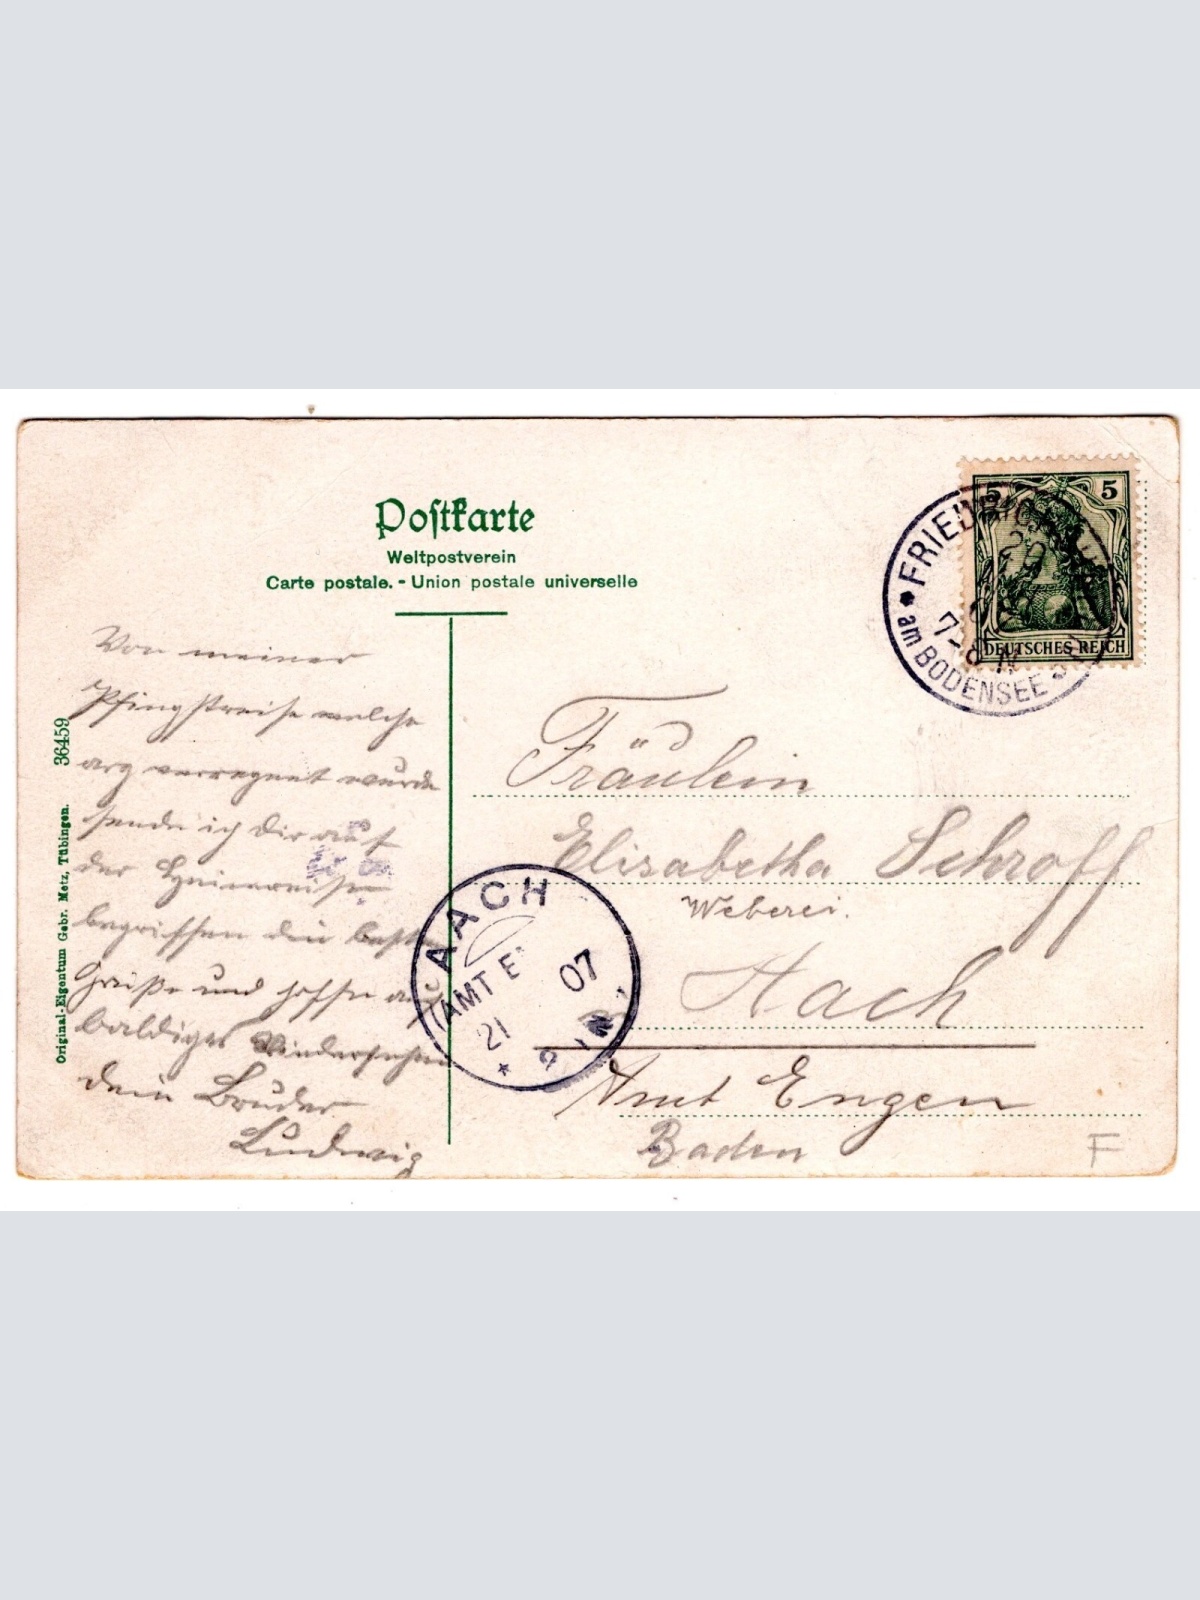 Postkarte
Weltpostverein
Carte postale. - Union postale universelle
5 5
DEUTSCHES REICH
FRIEDRICHSHAFEN
am BODENSEE
7-8 N
Von meiner
Pfingstreise welche
arg verregnet wurde
sende ich Dir auf
der Heimreise
begriffen die besten
Grüße und hoffe auf
baldiges Wiedersehen
dein Bruder
Ludwig
Fräulein
Elisabetha Schroff
Weberei.
Aach
Amt Engen
Baden
F
AACH
(AMT E
21 07
36459
Original-Eigentum Gebr. Metz, Tübingen.